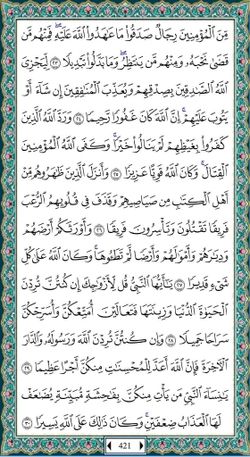 مِّنَ ٱلْمُؤْمِنِينَ رِجَالٌ صَدَقُوا۟ مَا عَٰهَدُوا۟ ٱللَّهَ عَلَيْهِ ۖ فَمِنْهُم مَّن
قَضَىٰ نَحْبَهُۥ وَمِنْهُم مَّن يَنتَظِرُ ۖ وَمَا بَدَّلُوا۟ تَبْدِيلًا ٢٣ لِّيَجْزِىَ
ٱللَّهُ ٱلصَّٰدِقِينَ بِصِدْقِهِمْ وَيُعَذِّبَ ٱلْمُنَٰفِقِينَ إِن شَآءَ أَوْ
يَتُوبَ عَلَيْهِمْ ۚ إِنَّ ٱللَّهَ كَانَ غَفُورًا رَّحِيمًا ٢٤ وَرَدَّ ٱللَّهُ ٱلَّذِينَ
كَفَرُوا۟ بِغَيْظِهِمْ لَمْ يَنَالُوا۟ خَيْرًا ۚ وَكَفَى ٱللَّهُ ٱلْمُؤْمِنِينَ
ٱلْقِتَالَ ۚ وَكَانَ ٱللَّهُ قَوِيًّا عَزِيزًا ٢٥ وَأَنزَلَ ٱلَّذِينَ ظَٰهَرُوهُم مِّنْ
أَهْلِ ٱلْكِتَٰبِ مِن صَيَاصِيهِمْ وَقَذَفَ فِى قُلُوبِهِمُ ٱلرُّعْبَ
فَرِيقًا تَقْتُلُونَ وَتَأْسِرُونَ فَرِيقًا ٢٦ وَأَوْرَثَكُمْ أَرْضَهُمْ
وَدِيَٰرَهُمْ وَأَمْوَٰلَهُمْ وَأَرْضًا لَّمْ تَطَـُٔوهَا ۚ وَكَانَ ٱللَّهُ عَلَىٰ كُلِّ
شَىْءٍ قَدِيرًا ٢٧ يَٰٓأَيُّهَا ٱلنَّبِىُّ قُل لِّأَزْوَٰجِكَ إِن كُنتُنَّ تُرِدْنَ
ٱلْحَيَوٰةَ ٱلدُّنْيَا وَزِينَتَهَا فَتَعَالَيْنَ أُمَتِّعْكُنَّ وَأُسَرِّحْكُنَّ
سَرَاحًا جَمِيلًا ٢٨ وَإِن كُنتُنَّ تُرِدْنَ ٱللَّهَ وَرَسُولَهُۥ وَٱلدَّارَ
ٱلْءَاخِرَةَ فَإِنَّ ٱللَّهَ أَعَدَّ لِلْمُحْسِنَٰتِ مِنكُنَّ أَجْرًا عَظِيمًا ٢٩
يَٰنِسَآءَ ٱلنَّبِىِّ مَن يَأْتِ مِنكُنَّ بِفَٰحِشَةٍ مُّبَيِّنَةٍ يُضَٰعَفْ
لَهَا ٱلْعَذَابُ ضِعْفَيْنِ ۚ وَكَانَ ذَٰلِكَ عَلَى ٱللَّهِ يَسِيرًا ٣٠
421